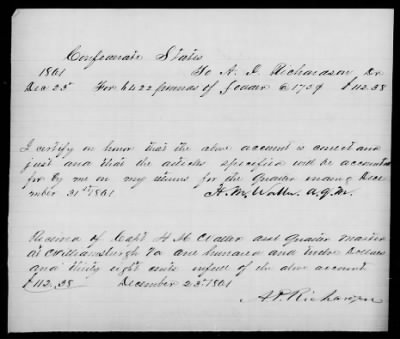 Confederate States
1861 To A. J. Richardson Dr
Dec 23d For 6422 pounds of fodder @ 1.75 $112.38
I certify on honor that the above account is correct and
just and that the articles specified will be accounted
for by me on my return for the Quarter ending Dece
mber 31st 1861 H. M. Waller a.q.m.
Received of Capt H M Waller asst Quarter Master
at Williamsburgh Va one hundred and twelve Dollars
and thirty eight cents in full of the above account
$112.38 December 23d 1861
Richardson